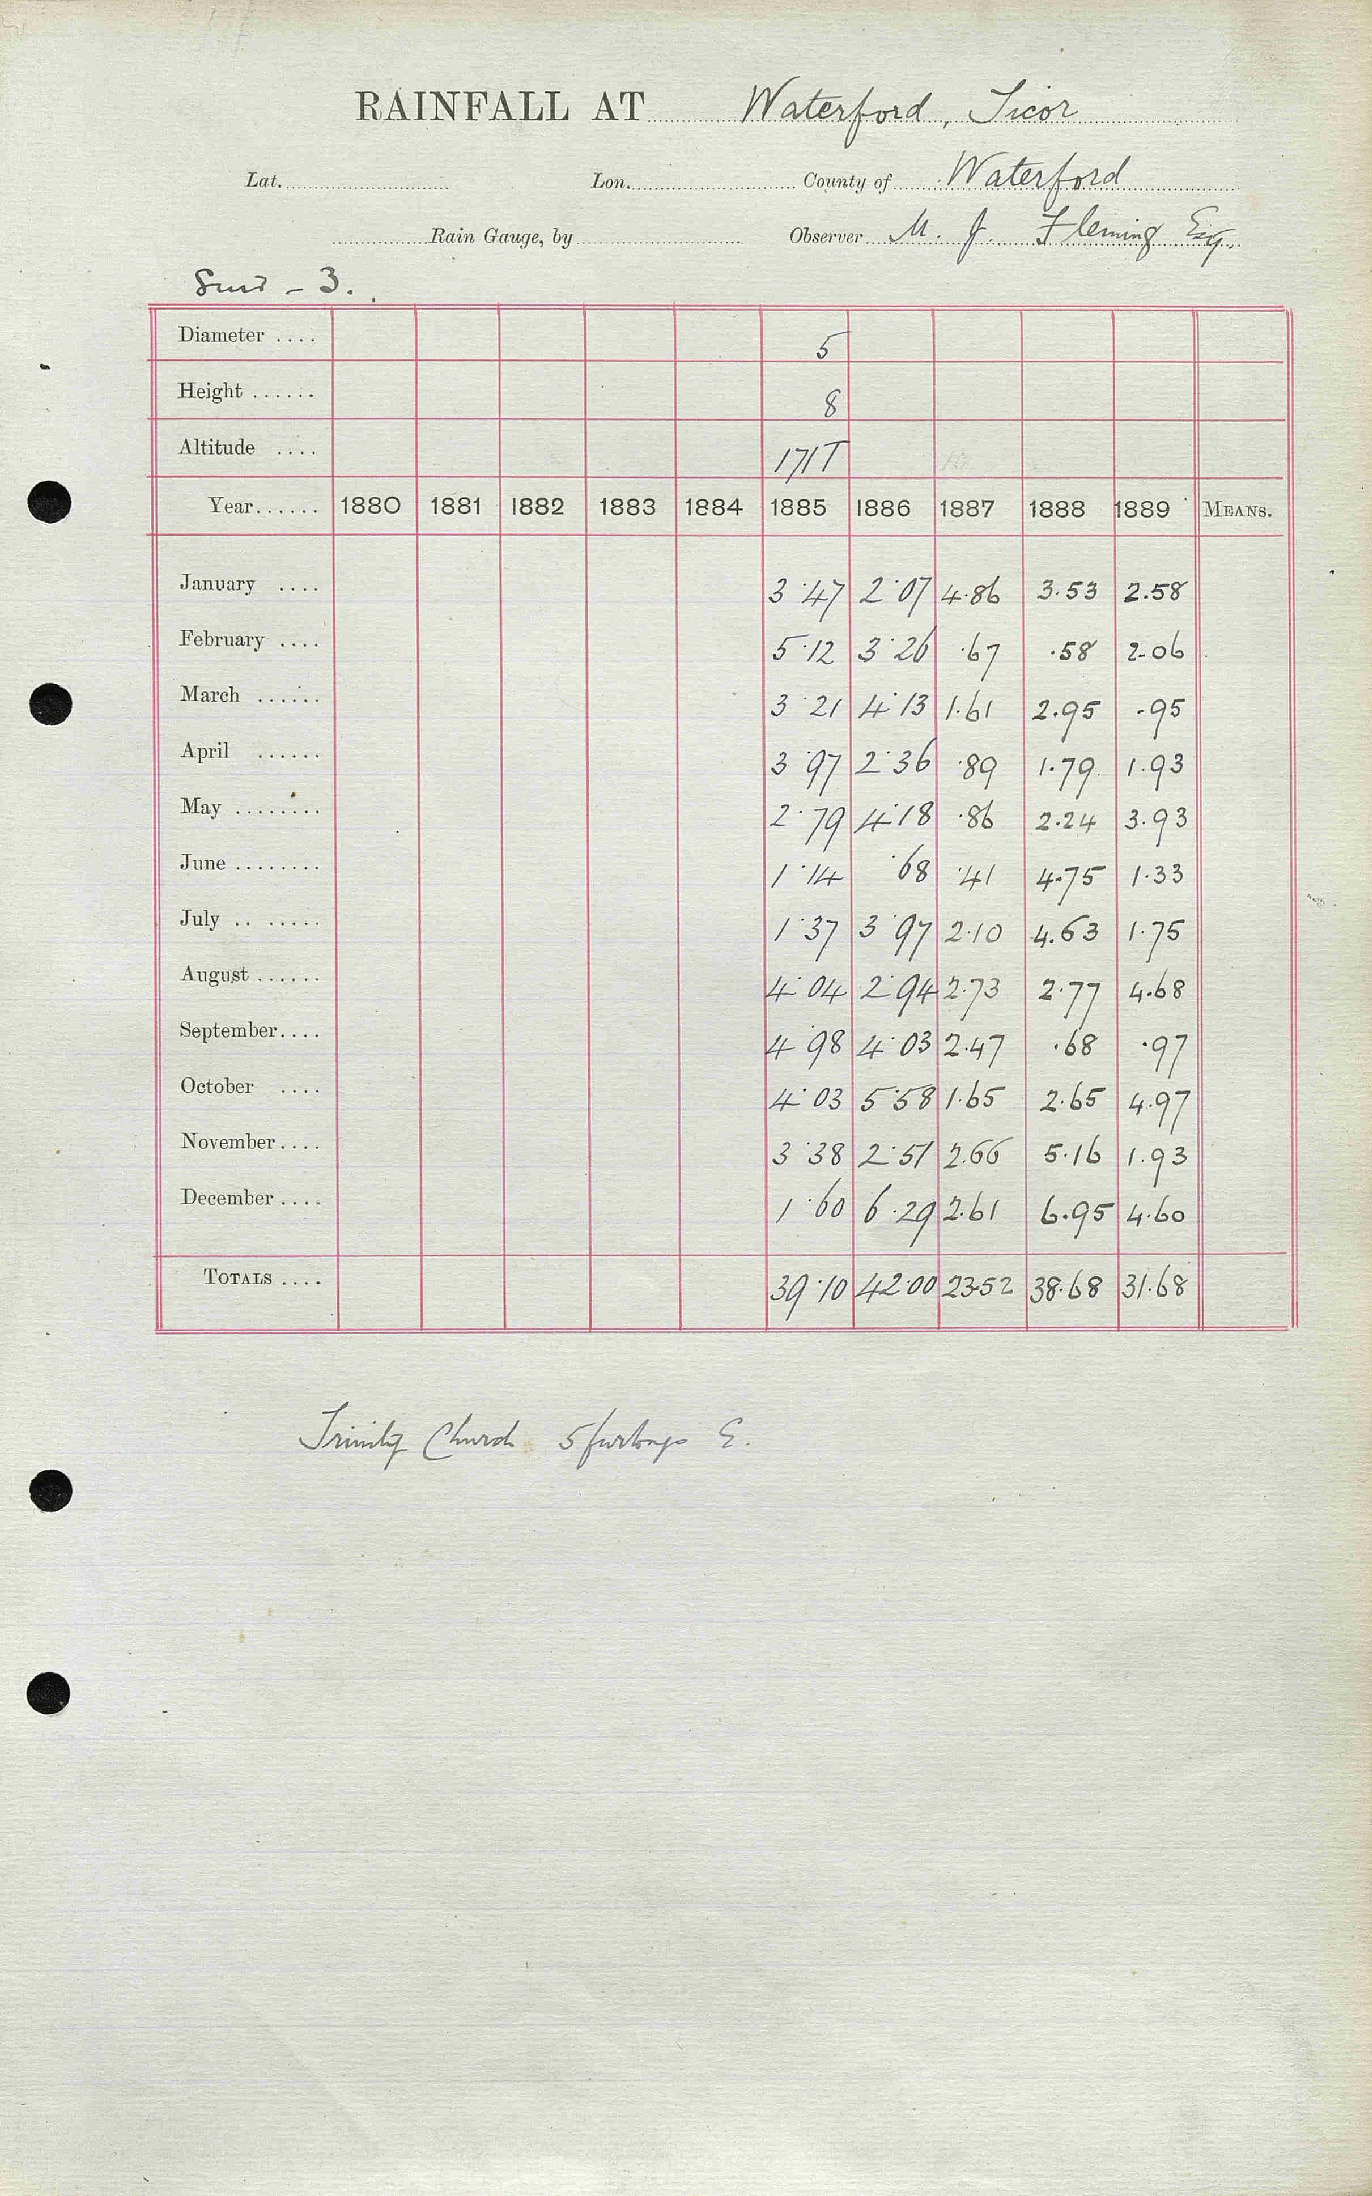 RAINFALL AT Waterford, Ticor
Lat. Lon. County of Waterford
Rain Gauge, by Observer M. J. Fleming Esq.
- 3.
Diameter .... 5
Height ...... 8
Altitude .... 171T
Year...... 1880 1881 1882 1883 1884 1885 1886 1887 1888 1889 MEANS.
January .... 3.47 2.07 4.86 3.53 2.58
February .... 5.12 3.26 .67 .58 2.06
March ...... 3.21 4.13 1.61 2.95 .95
April ...... 3.97 2.36 .89 1.79 1.93
May ........ 2.79 4.18 .86 2.24 3.93
June ........ 1.14 .68 .41 4.75 1.33
July .. ...... 1.37 3.97 2.10 4.63 1.75
August ...... 4.04 2.94 2.73 2.77 4.68
September.... 4.98 4.03 2.47 .68 .97
October .... 4.03 5.58 1.65 2.65 4.97
November.... 3.38 2.51 2.66 5.16 1.93
December .... 1.60 6.29 2.61 6.95 4.60
TOTALS .... 39.10 42.00 23.52 38.68 31.68
Trinity Church 5 furlongs E.